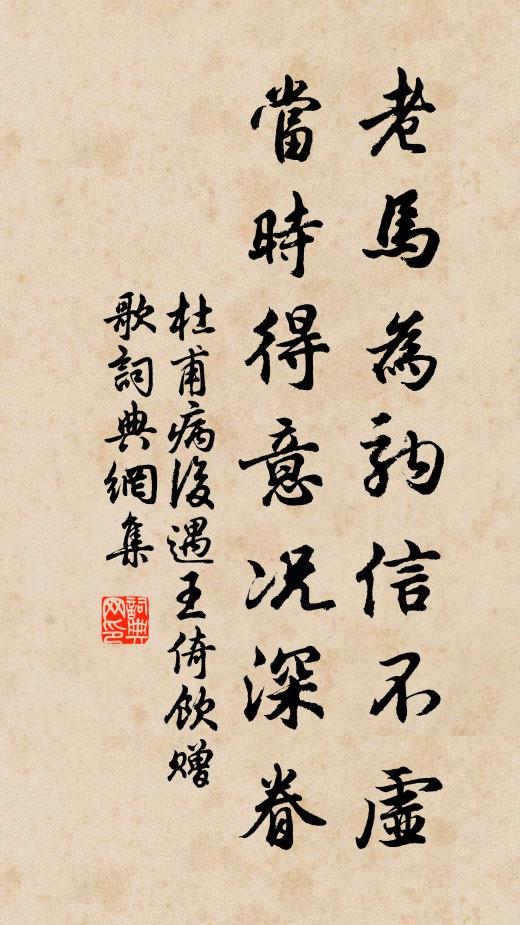 老馬為駒信不虛
當時得意況深眷
杜甫病後遇王倚飲贈
歌詞典網集
詞典
网印